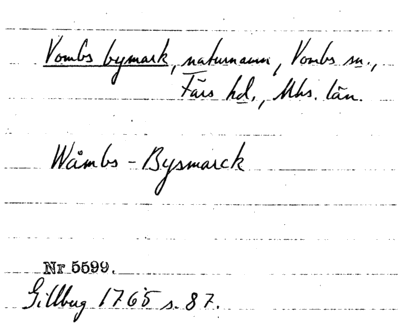 Vombs bymark, naturnamn, Vombs sn.,
Färs hd., Mhs. län.
Wåmbs - Bysmarck
Nr 5599.
Gillberg 1765 s. 87.